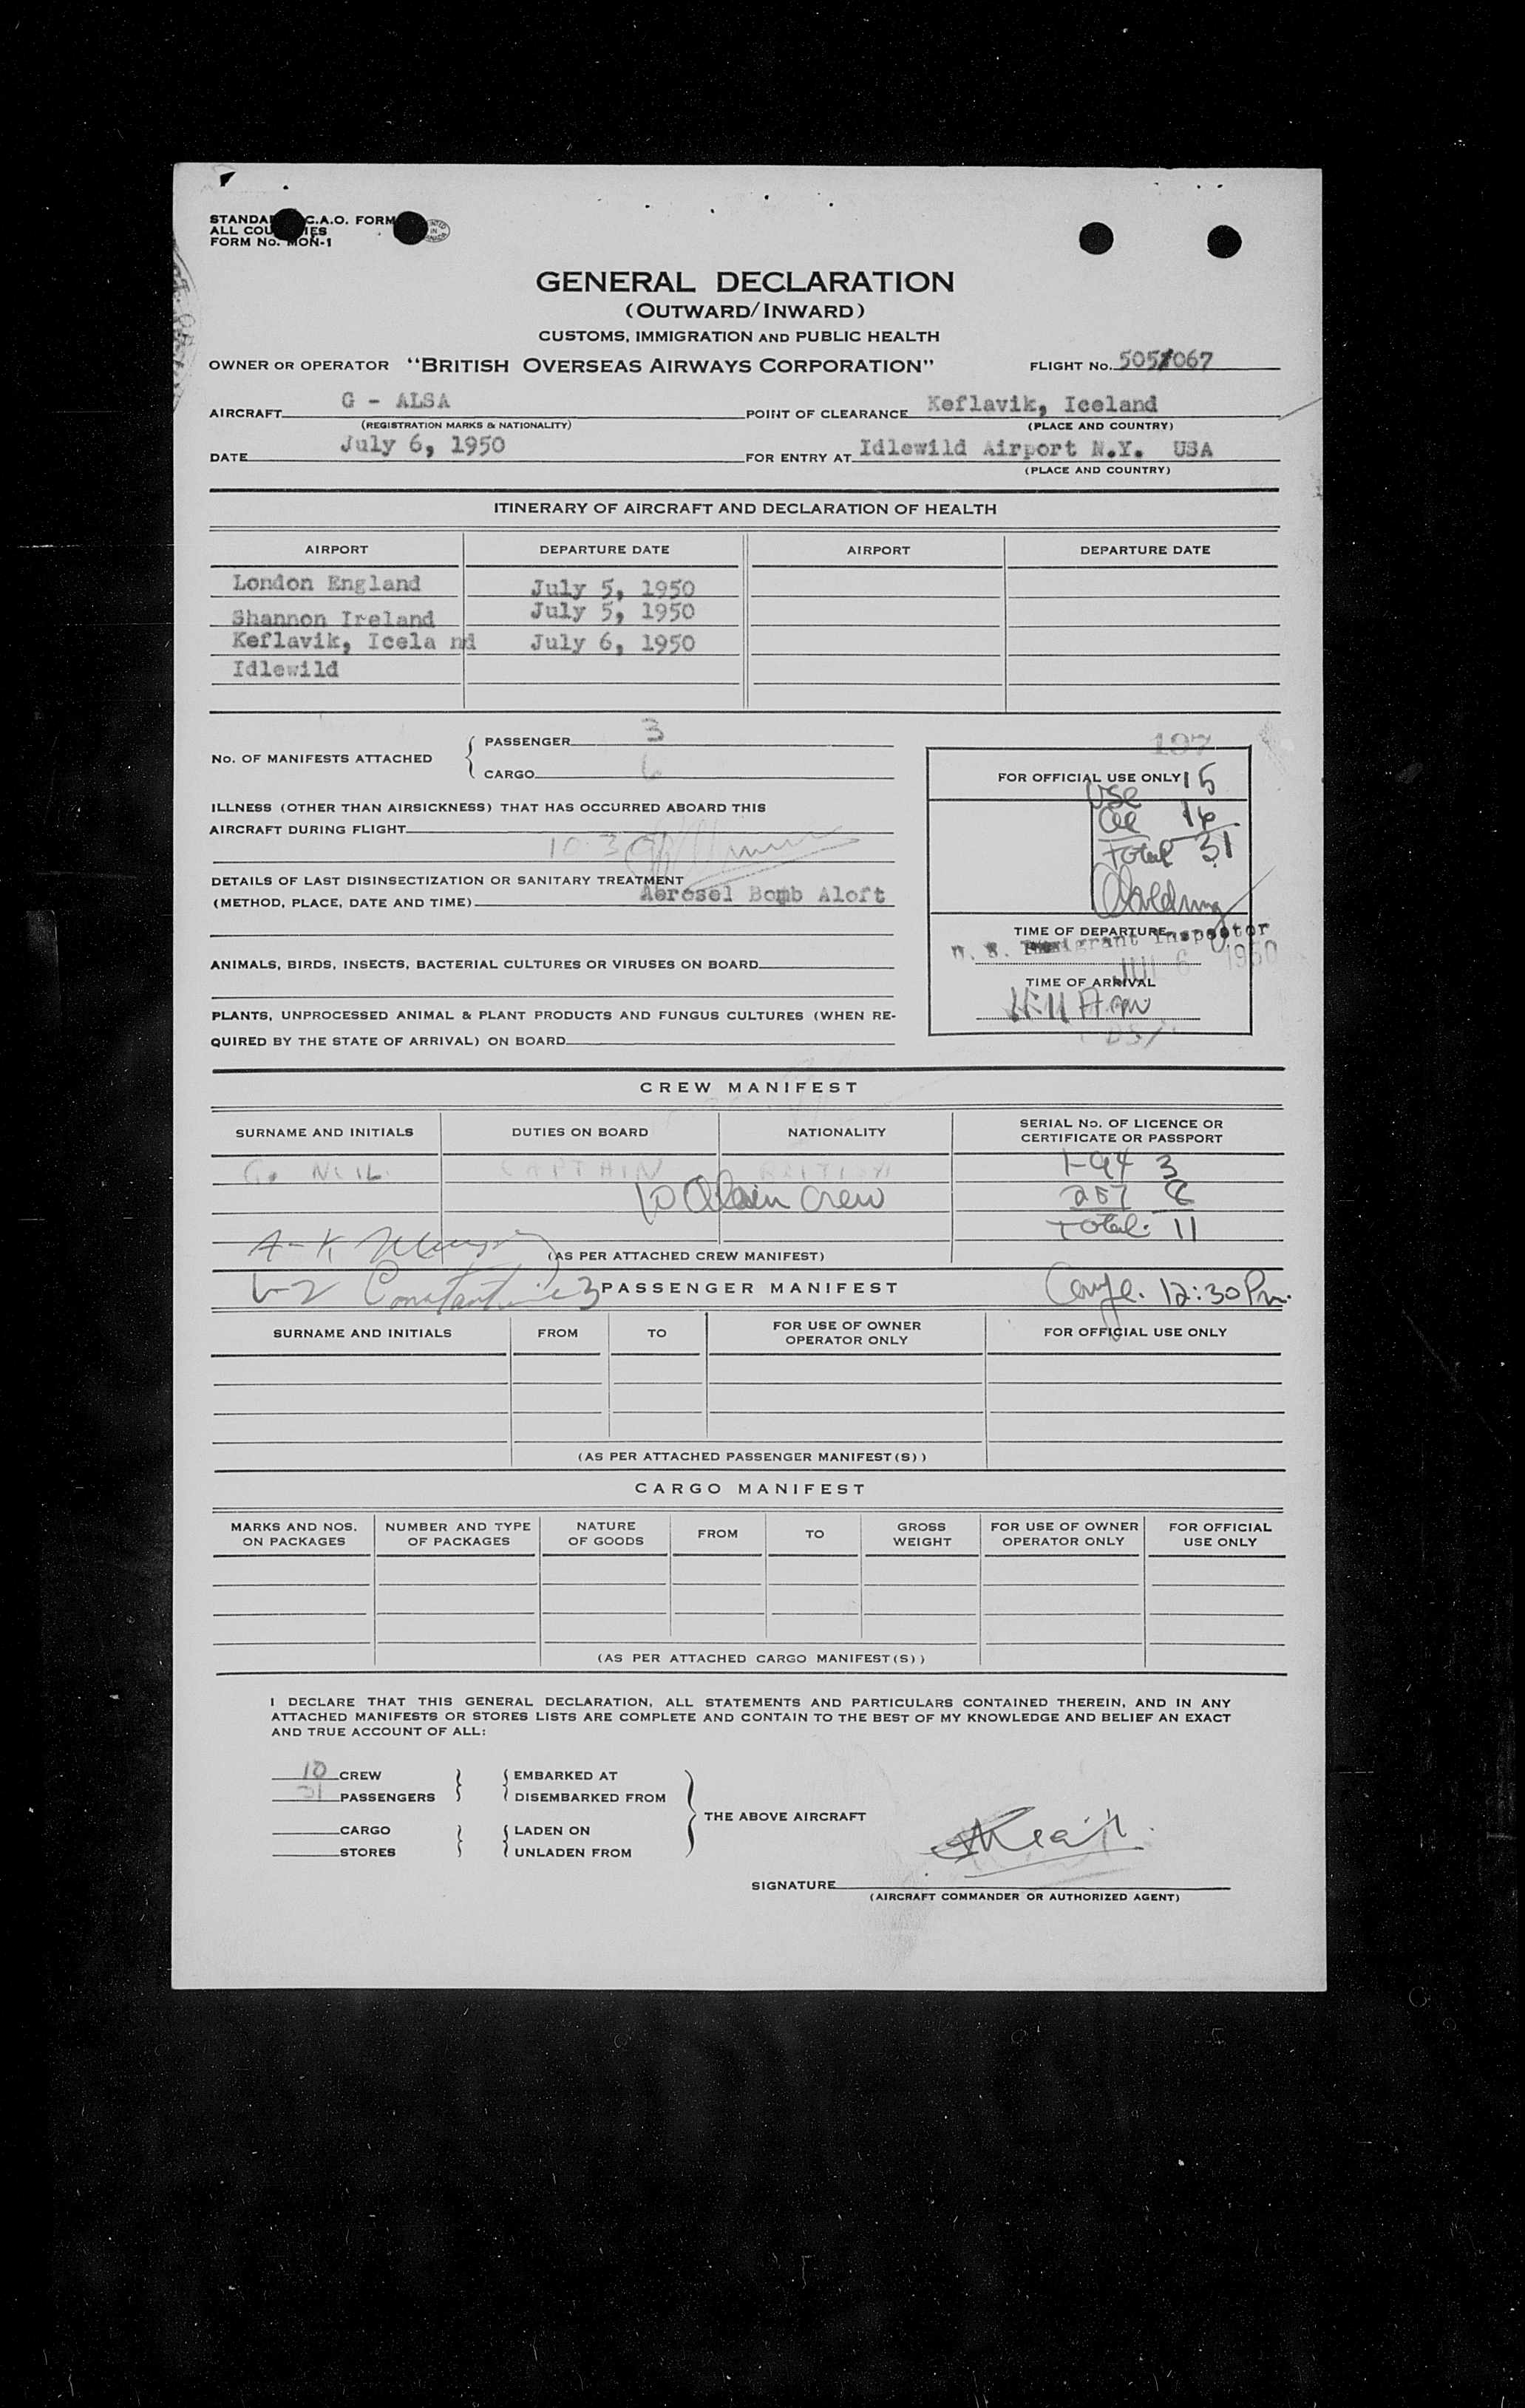 STANDA C.A.O. FORM
ALL COU IES
FORM No. MON-1
GENERAL DECLARATION
(OUTWARD/INWARD)
CUSTOMS, IMMIGRATION AND PUBLIC HEALTH
OWNER OR OPERATOR "BRITISH OVERSEAS AIRWAYS CORPORATION" FLIGHT No. 505/067
AIRCRAFT G - ALSA POINT OF CLEARANCE Keflavik, Iceland
(REGISTRATION MARKS & NATIONALITY) (PLACE AND COUNTRY)
DATE July 6, 1950 FOR ENTRY AT Idlewild Airport N.Y. USA
(PLACE AND COUNTRY)
ITINERARY OF AIRCRAFT AND DECLARATION OF HEALTH
AIRPORT DEPARTURE DATE AIRPORT DEPARTURE DATE
London England July 5, 1950
Shannon Ireland July 5, 1950
Keflavik, Icela nd July 6, 1950
Idlewild
No. OF MANIFESTS ATTACHED
PASSENGER 3
CARGO 6
ILLNESS (OTHER THAN AIRSICKNESS) THAT HAS OCCURRED ABOARD THIS
AIRCRAFT DURING FLIGHT
DETAILS OF LAST DISINSECTIZATION OR SANITARY TREATMENT
(METHOD, PLACE, DATE AND TIME) Aerosel Bomb Aloft
ANIMALS, BIRDS, INSECTS, BACTERIAL CULTURES OR VIRUSES ON BOARD
PLANTS, UNPROCESSED ANIMAL & PLANT PRODUCTS AND FUNGUS CULTURES (WHEN RE-
QUIRED BY THE STATE OF ARRIVAL) ON BOARD
107
FOR OFFICIAL USE ONLY
USC 15
Al 16
Total 31
TIME OF DEPARTURE
U. S. Immigrant Inspector
JUL 6 1950
TIME OF ARRIVAL
11:11 A.M
CREW MANIFEST
SURNAME AND INITIALS DUTIES ON BOARD NATIONALITY SERIAL No. OF LICENCE OR
CERTIFICATE OR PASSPORT
G. NEIL CAPTAIN BRITISH I-94 3
10 Alien Crew 257 8
Total 11
(AS PER ATTACHED CREW MANIFEST)
PASSENGER MANIFEST
12:30 Pm.
SURNAME AND INITIALS FROM TO FOR USE OF OWNER
OPERATOR ONLY FOR OFFICIAL USE ONLY
(AS PER ATTACHED PASSENGER MANIFEST(S))
CARGO MANIFEST
MARKS AND NOS. NUMBER AND TYPE NATURE FROM TO GROSS FOR USE OF OWNER FOR OFFICIAL
ON PACKAGES OF PACKAGES OF GOODS WEIGHT OPERATOR ONLY USE ONLY
(AS PER ATTACHED CARGO MANIFEST(S))
I DECLARE THAT THIS GENERAL DECLARATION, ALL STATEMENTS AND PARTICULARS CONTAINED THEREIN, AND IN ANY
ATTACHED MANIFESTS OR STORES LISTS ARE COMPLETE AND CONTAIN TO THE BEST OF MY KNOWLEDGE AND BELIEF AN EXACT
AND TRUE ACCOUNT OF ALL:
10 CREW EMBARKED AT
31 PASSENGERS DISEMBARKED FROM
THE ABOVE AIRCRAFT
CARGO LADEN ON
STORES UNLADEN FROM
SIGNATURE
(AIRCRAFT COMMANDER OR AUTHORIZED AGENT)